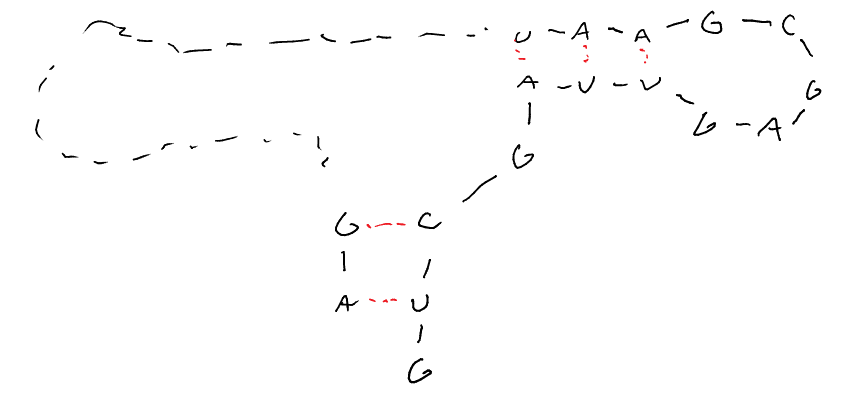 U A A G C
A U U G
G A
G
G C
A U
G